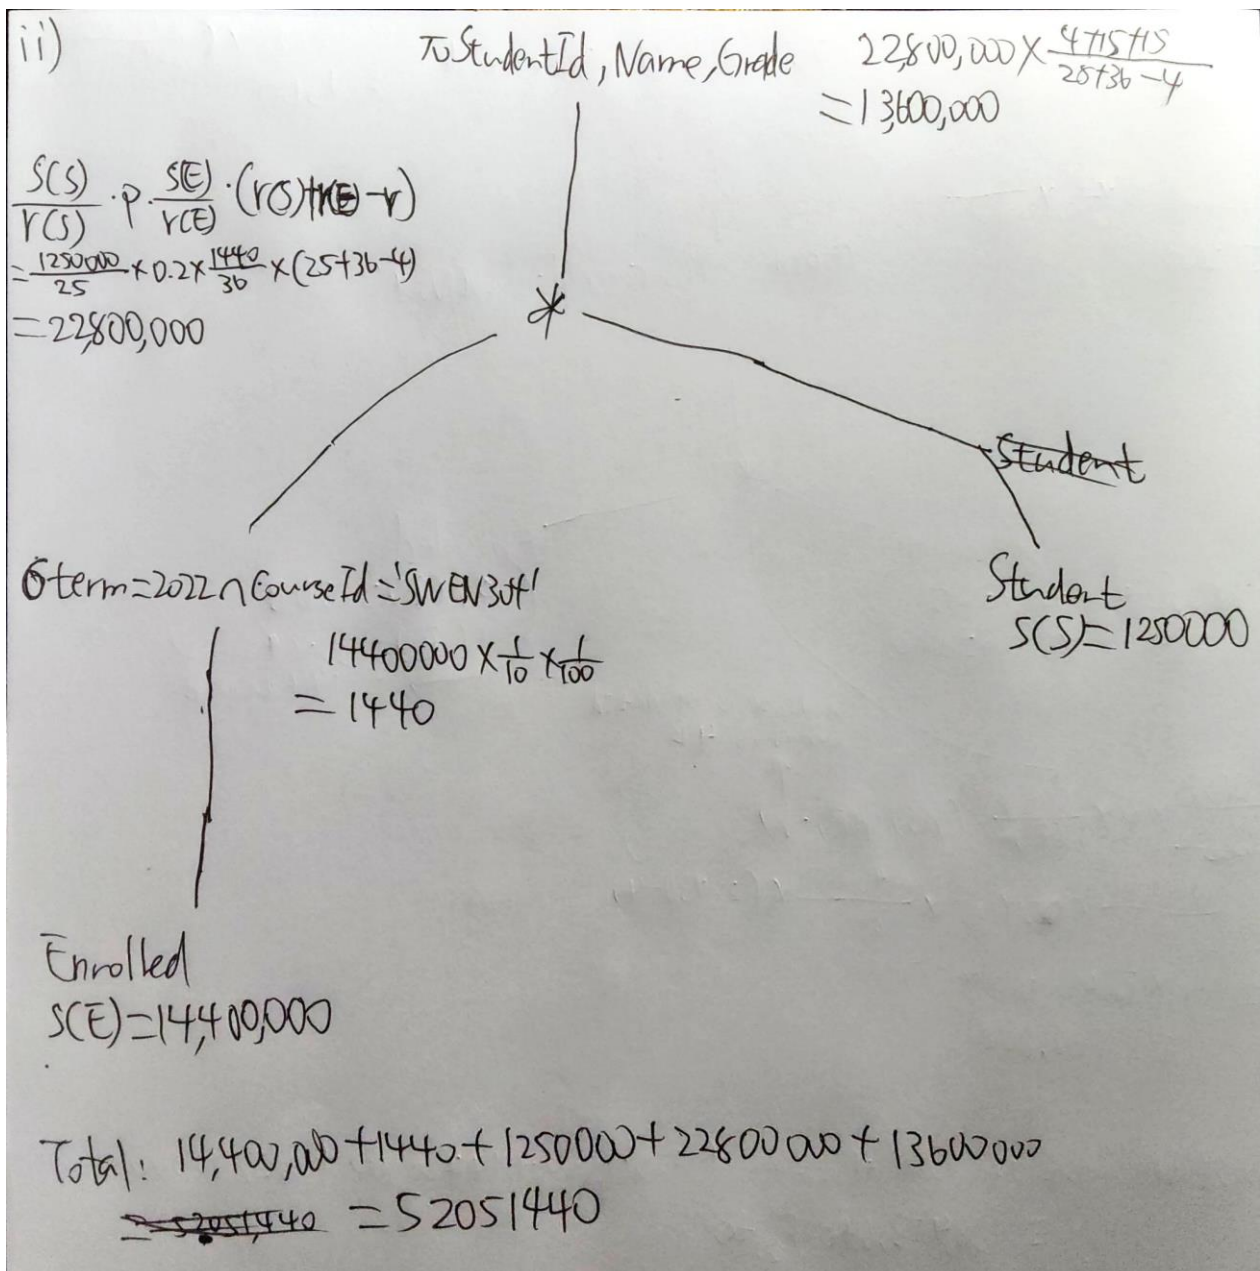 ii)
π StudentId, Name, Grade
22,800,000 × (4+15+15)/(25+36-4)
= 13,600,000
S(S)/r(S) · P · S(E)/r(E) · (r(S)+r(E)-r)
= 1250000/25 × 0.2 × 1440/36 × (25+36-4)
= 22,800,000
*
Student
σ term=2022 ∩ CourseId='SWEN304'
14400000 × 1/10 × 1/100
= 1440
Student
S(S)=1250000
Enrolled
S(E)=14,400,000
Total: 14,400,000+1440+1250000+22800000+13600000
= 52051,440 = 52051440